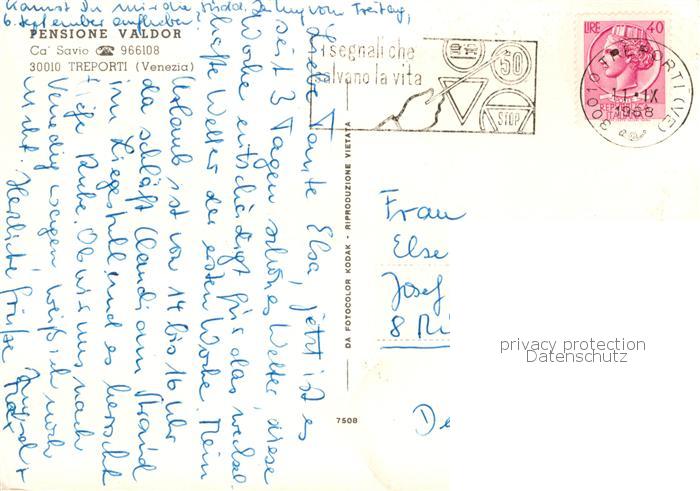 Kannst Du mir die Südd. Zeitung vom Freitag,
6. September aufheben?
PENSIONE VALDOR
Ca' Savio ☎ 966108
30010 TREPORTI (Venezia)
i segnali che
salvano la vita
50
STOP
LIRE 40
REPUBBLICA
ITALIANA
30010 TREPORTI (VE)
11 · IX
1968
Liebe Tante Elsa, jetzt ist es
seit 3 Tagen schönes Wetter, diese
Woche entschädigt für das wechsel-
hafte Wetter der ersten Woche. Mein
Urlaub ist von 14 bis 16 Uhr
da schläft Claudi am Strand
im Liegestuhl und es herrscht
tiefe Ruhe. Ob wir uns nach
Venedig wagen weiß ich noch
nicht. Herzliche Grüße
Max
DA FOTOCOLOR KODAK - RIPRODUZIONE VIETATA
7508
Frau
Else
Josef
8 Mü
De
privacy protection
Datenschutz